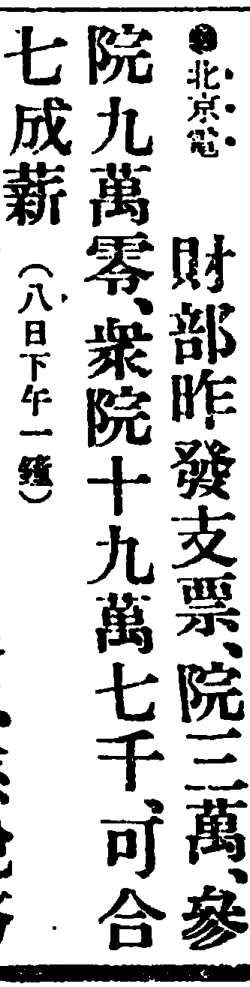 ●北京電　財部昨發支票、院三萬、參
院九萬零、衆院十九萬七千、可合
七成薪（八日下午一鐘）